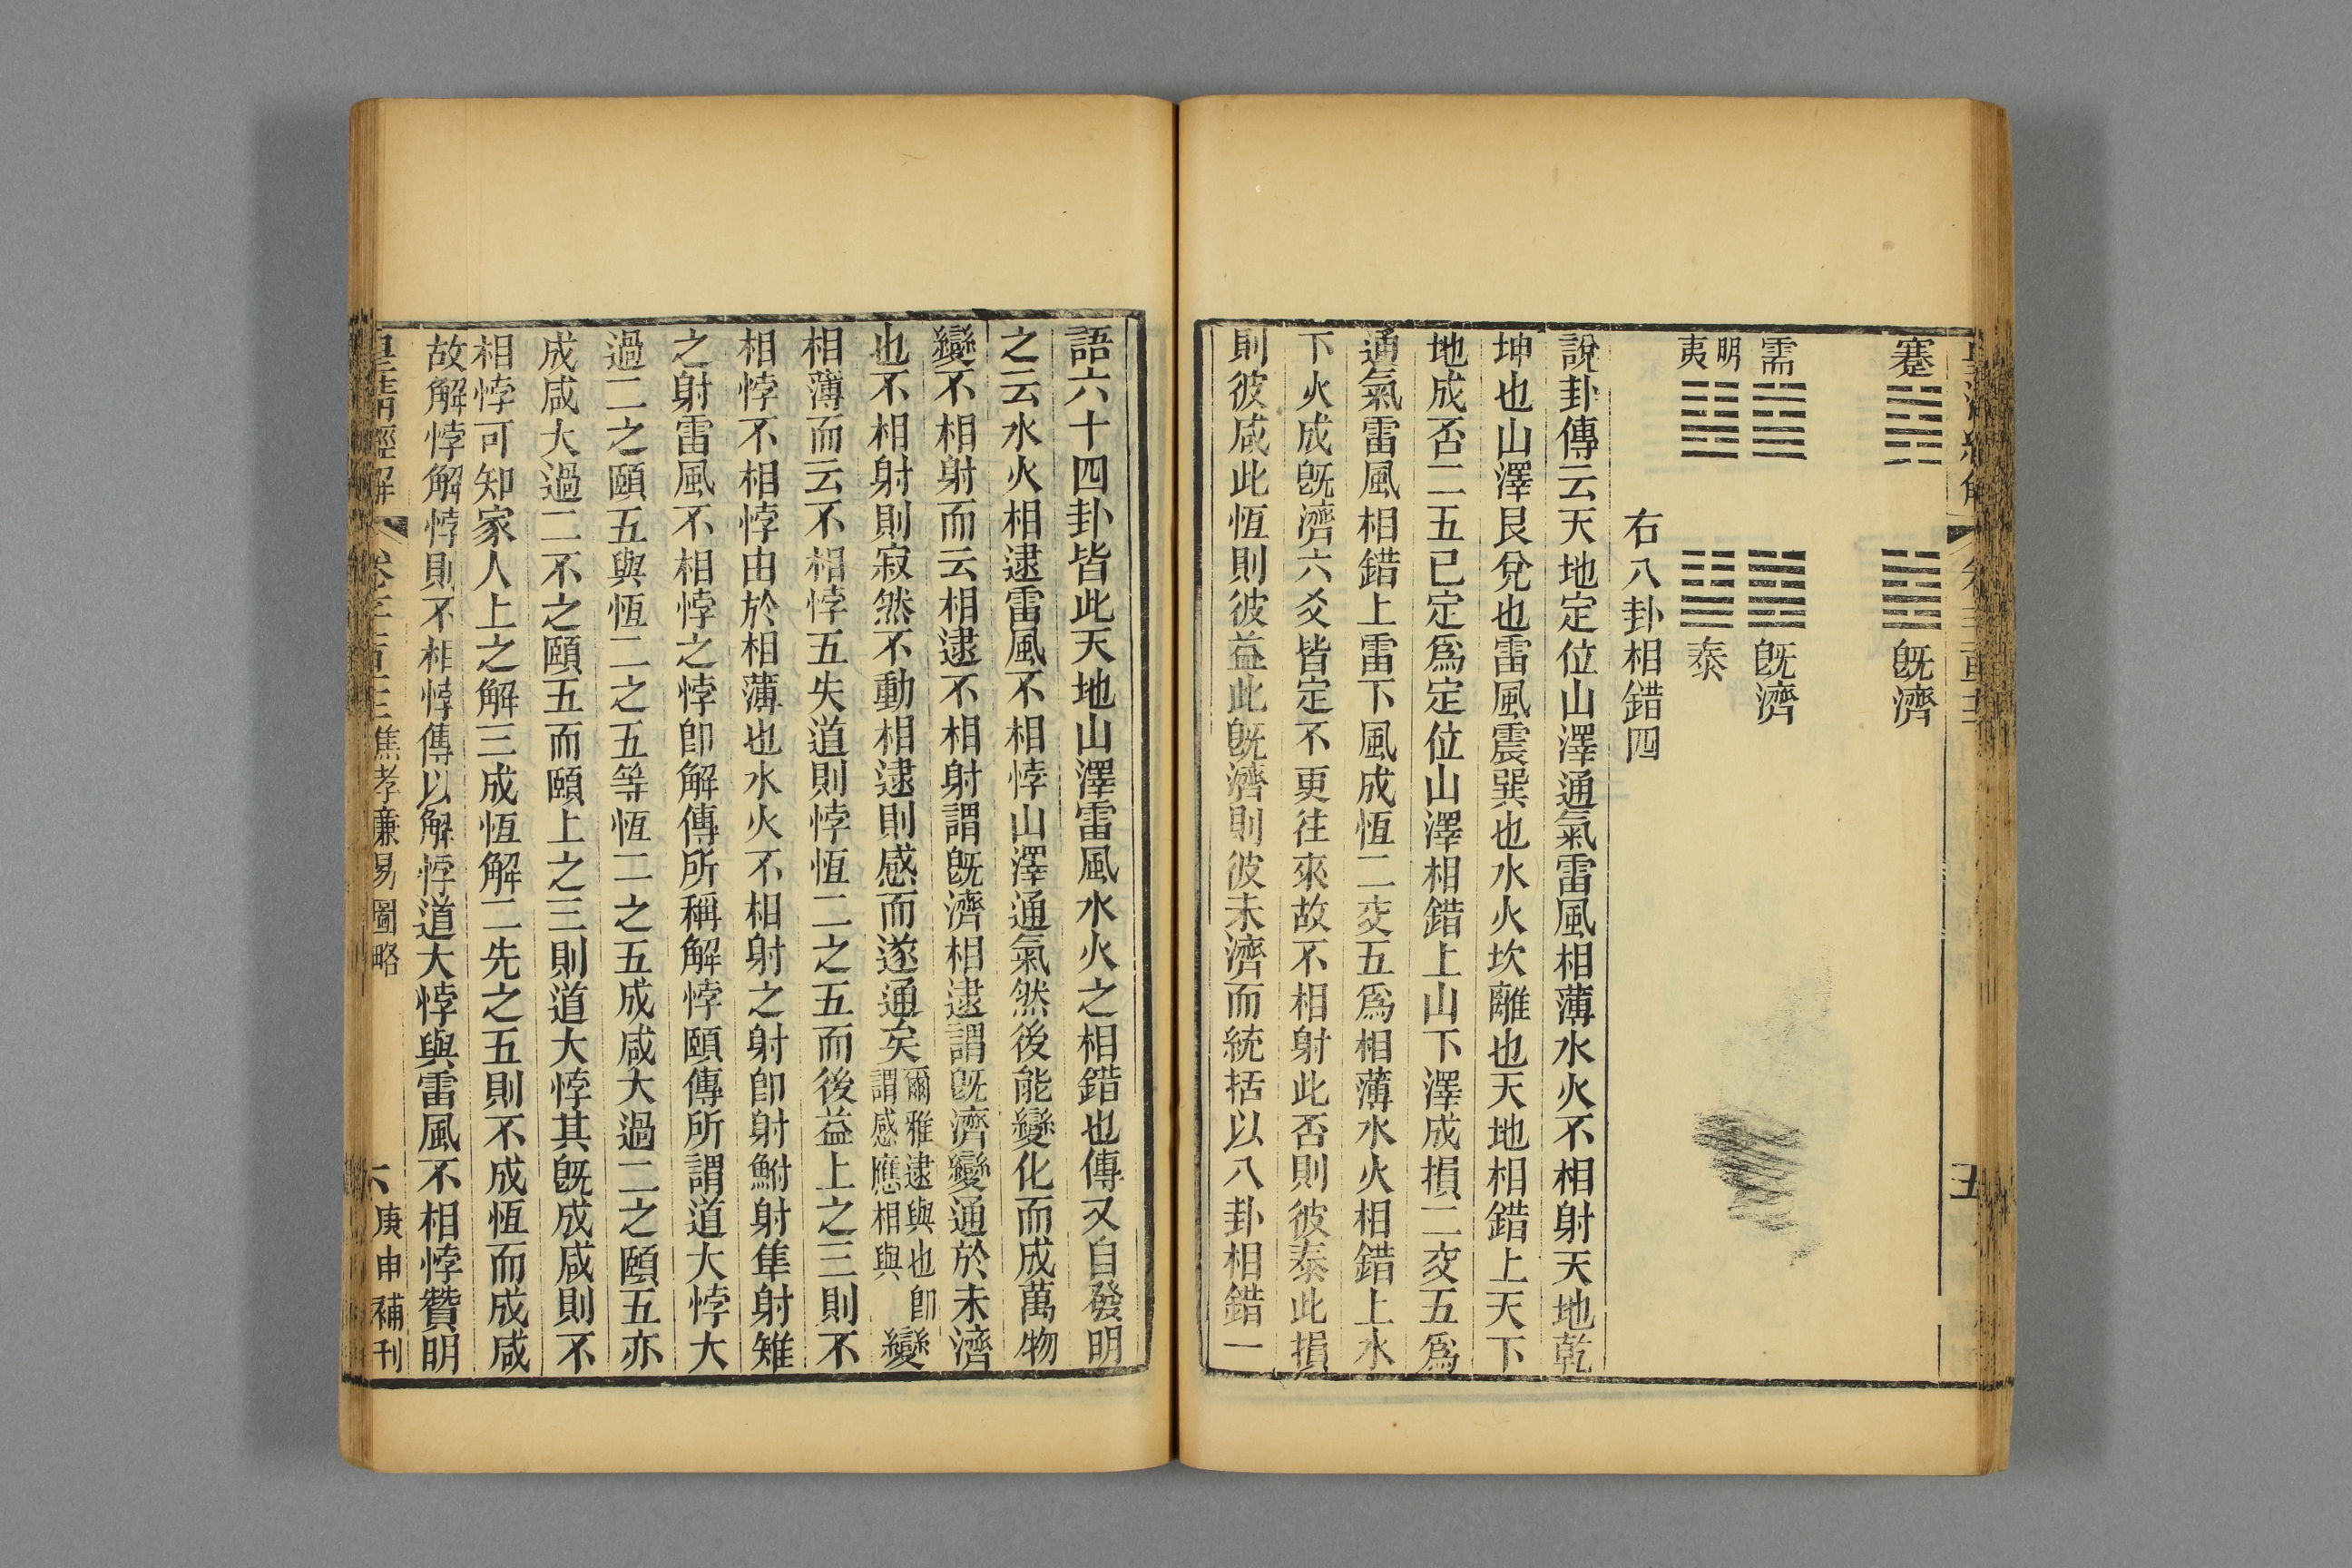 蹇 既濟
需 既濟
明夷 泰
右八卦相錯四
說卦傳云天地定位山澤通氣雷風相薄水火不相射天地乾
坤也山澤艮兌也雷風震巽也水火坎離也天地相錯上天下
地成否二五已定爲定位山澤相錯上山下澤成損二交五爲
通氣雷風相錯上雷下風成恆二交五爲相薄水火相錯上水
下火成旣濟六爻皆定不更往來故不相射此否則彼泰此損
則彼咸此恆則彼益此旣濟則彼未濟而統括以八卦相錯一
語六十四卦皆此天地山澤雷風水火之相錯也傳又自發明
之云水火相逮雷風不相悖山澤通氣然後能變化而成萬物
變不相射而云相逮不相射謂旣濟相逮謂旣濟變通於未濟
也不相射則寂然不動相逮則感而遂通矣爾雅逮與也卽謂感應相與變
相薄而云不相悖五失道則悖恆二之五而後益上之三則不
相悖不相悖由於相薄也水火不相射之射卽射鮒射隼射雉
之射雷風不相悖之悖卽解傳所稱解悖頤傳所謂道大悖大
過二之頤五與恆二之五等恆二之五成咸大過二之頤五亦
成咸大過二不之頤五而頤上之三則道大悖其旣成咸則不
相悖可知家人上之解三成恆解二先之五則不成恆而成咸
故解悖解悖則不相悖傳以解悖道大悖與雷風不相悖贊明
皇淸經解 卷 焦孝廉易圖略 六 庚申補刊